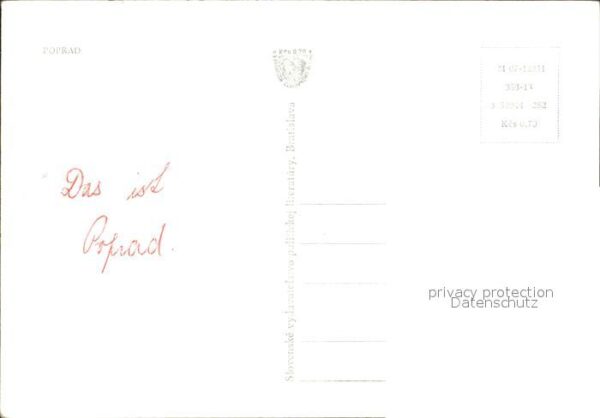 POPRAD
Das ist
Poprad.
Slovenské vydavateľstvo politickej literatúry, Bratislava
Kčs 0,70
privacy protection
Datenschutz